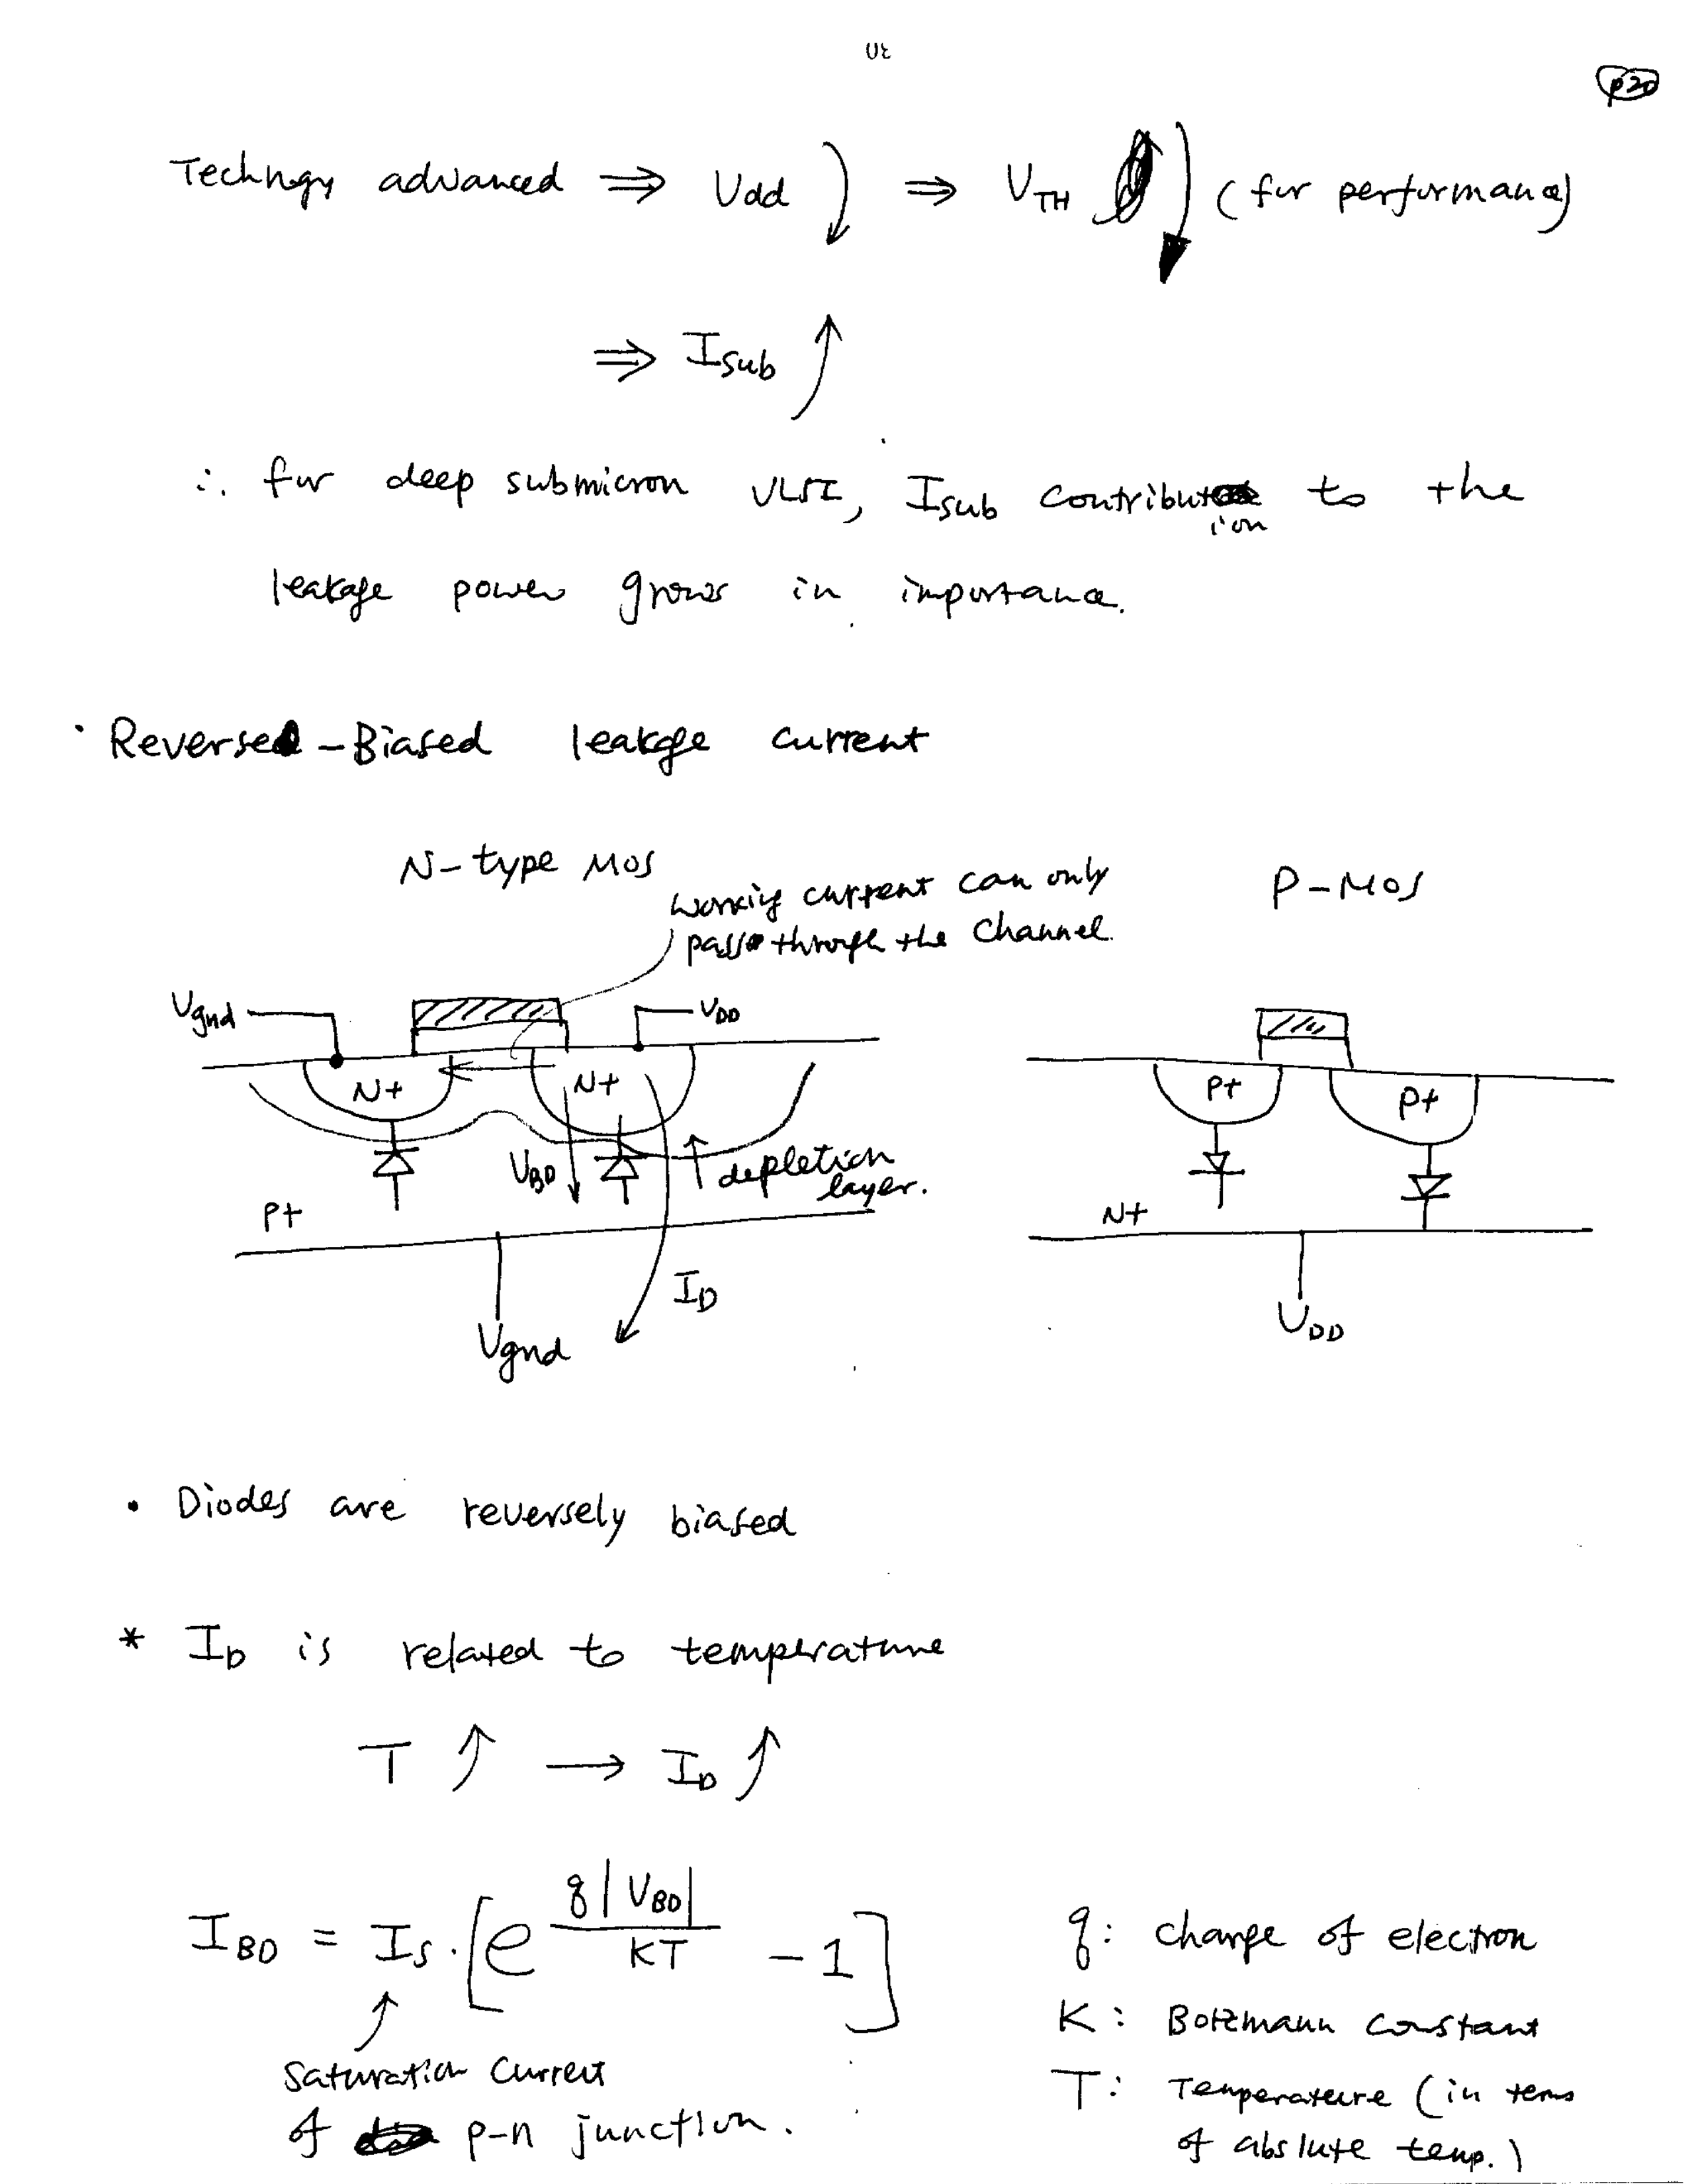 p20
Techngy advanced ⇒ Vdd ↓ ⇒ VTH ↓ (for performance)
⇒ Isub ↑
∴ for deep submicron VLSI, Isub contribution to the
leakage power grows in importance.
· Reverse-Biased leakge current
N-type MOS
P-MOS
working current can only
pass through the channel.
Vgnd
VDD
N+
N+
P+
P+
VBD
depletion
layer.
P+
N+
ID
Vgnd
VDD
• Diodes are reversely biased
* ID is related to temperature
T ↑ → ID ↑
IBD = IS · [e^(q|VBD|/KT) - 1]
q: charge of electron
K: Botzmann constant
Saturation current
of p-n junction.
T: Temperature (in terms
of abslute temp.)